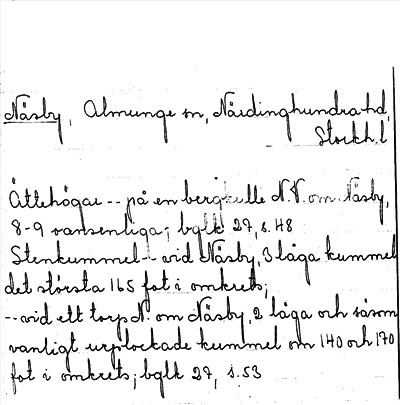 Näsby, Almunge sn, Närdinghundra hd,
Stockh. l
Ättehögar -- på en bergkulle N.V. om Näsby,
8-9 ; bglk 27, s. 48
Stenkummel -- vid Näsby, 3 låga kummel
det största 165 fot i omkrets;
-- vid ett torp N. om Näsby, 2 låga och såsom
vanligt urplockade kummel om 140 och 170
fot i omkrets; bglk 27, s. 53